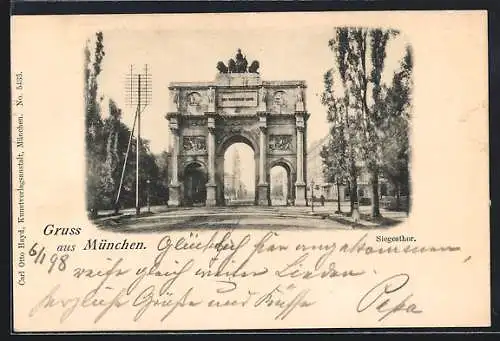 Carl Otto Hayd, Kunstverlagsanstalt, München. No. 5433.
Gruss
aus München.
Siegesthor.
6/1 98
Glücklich hier angekommen
gleich meinen Lieben
herzliche Grüße und Küsse Pepa